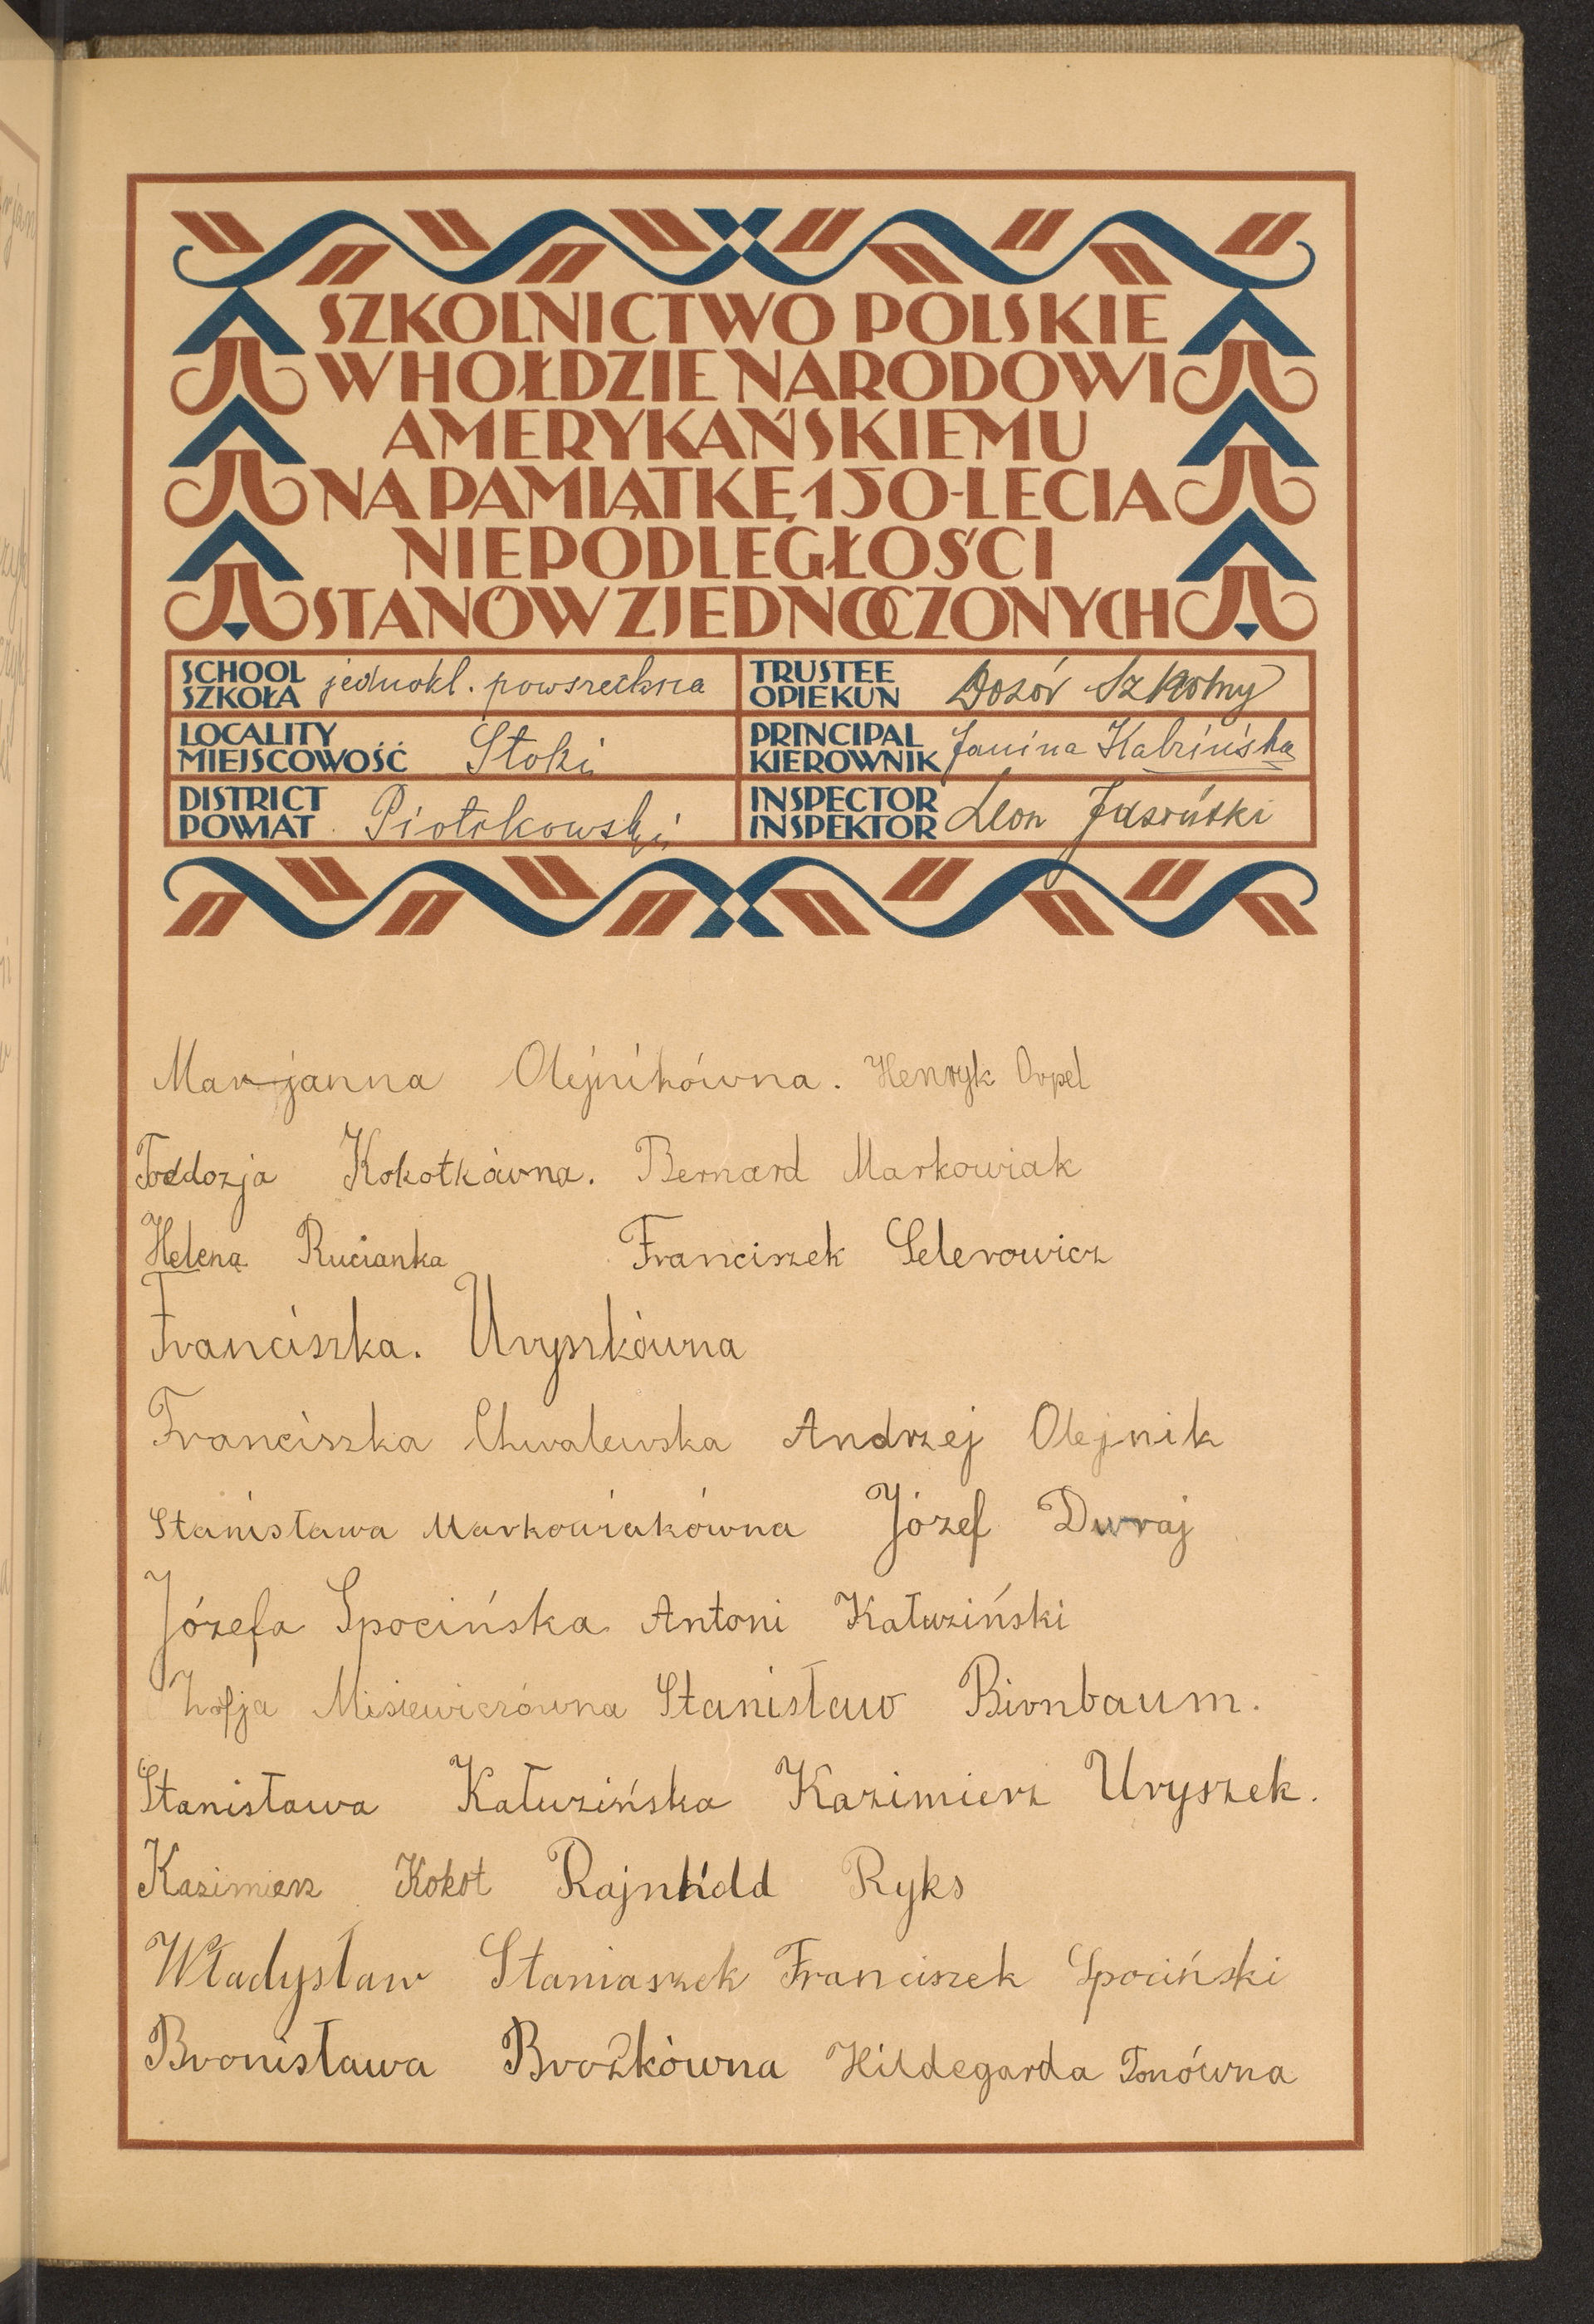 SZKOLNICTWO POLSKIE
W HOŁDZIE NARODOWI
AMERYKAŃSKIEMU
NA PAMIĄTKĘ 150-LECIA
NIEPODLEGŁOŚCI
STANÓW ZJEDNOCZONYCH
SCHOOL
SZKOŁA jednokl. powszechna
TRUSTEE
OPIEKUN Dozór Szkolny
LOCALITY
MIEJSCOWOŚĆ Stoki
PRINCIPAL
KIEROWNIK Janina Kabzińska
DISTRICT
POWIAT Piotrkowski
INSPECTOR
INSPEKTOR Leon
Marjanna Olejnikówna. Henryk Orpel
Kokotkówna. Bernard Markowiak
Helena Rucianka Franciszek Selerowicz
Franciszka. Uryszkówna
Franciszka Chwalewska Andrzej Olejnik
Stanisława Markowiakówna Józef Duraj
Józefa Spocińska Antoni Kałuziński
Zofja Misiewiczówna Stanisław Birnbaum.
Stanisława Kałuzińska Kazimierz Uryszek.
Kazimierz Kokot Rajnhold Ryks
Władysław Staniaszek Franciszek Spociński
Bronisława Brożkówna Hildegarda Tonówna